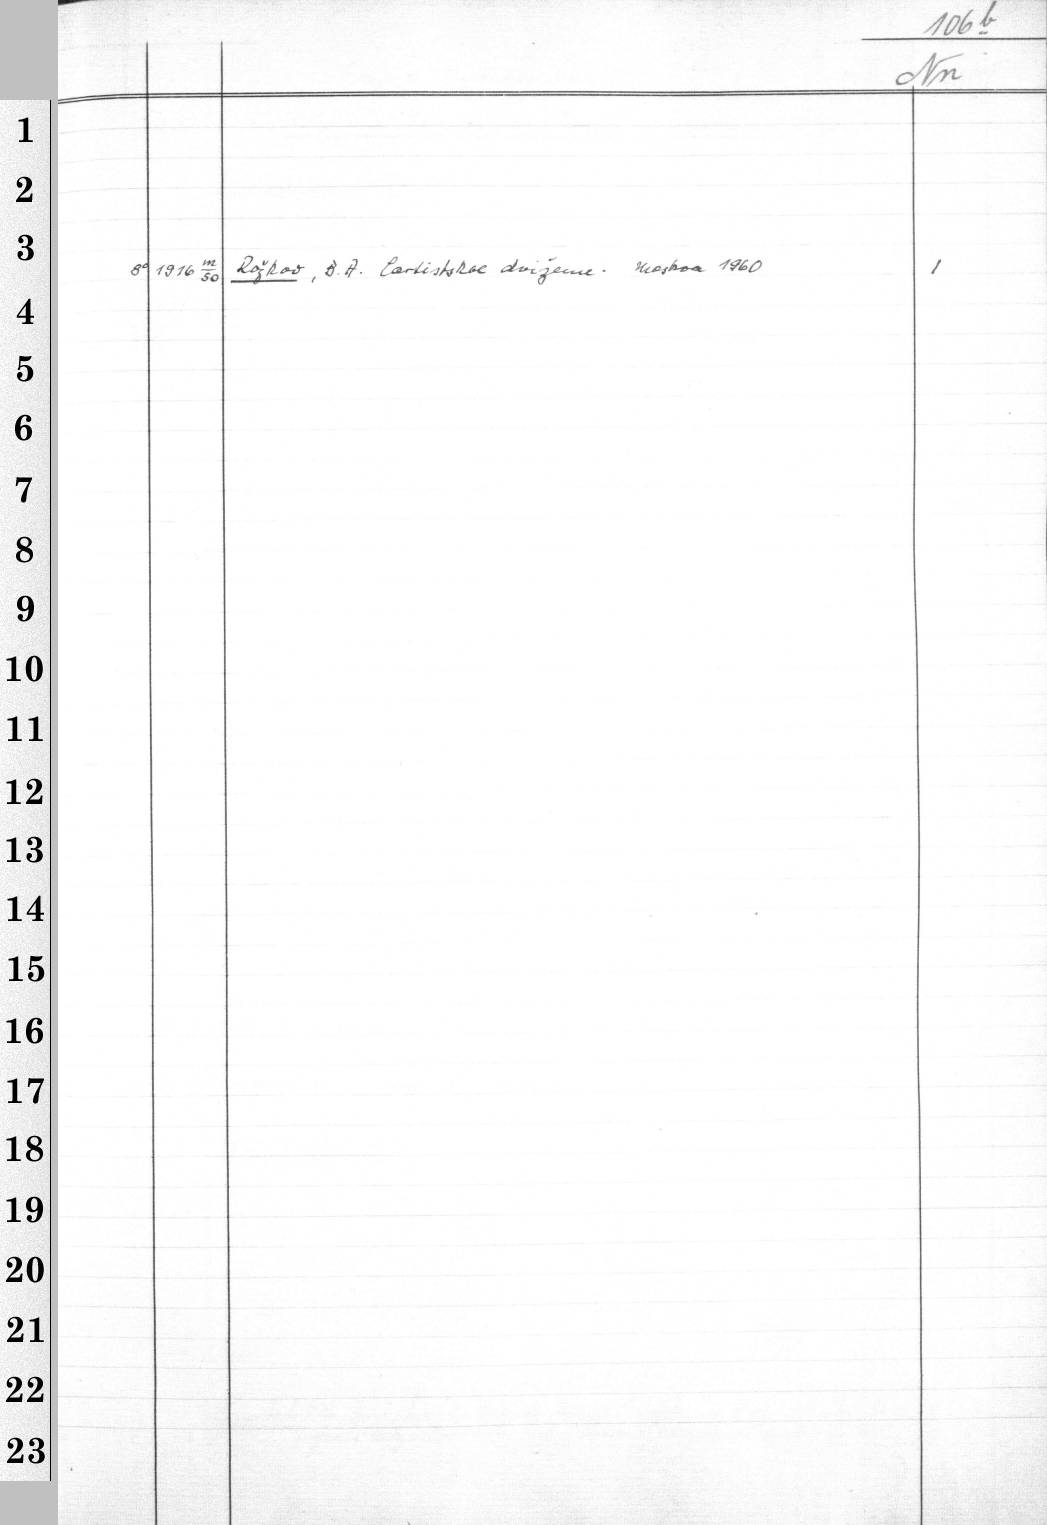 106 b
Nn
1
2
3
8° 1916 m/50 Rožkov, B. A. Čartistskoe dviženie. Moskva 1960 1
4
5
6
7
8
9
10
11
12
13
14
15
16
17
18
19
20
21
22
23